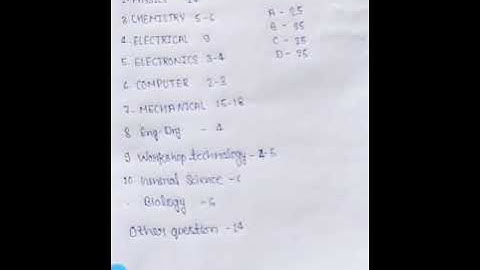 3 CHEMISTRY 5-6
A - 25
B - 25
4. ELECTRICAL 9
C - 25
5. ELECTRONICS 3-4
D - 25
6 COMPUTER 2-3
7- MECHANICAL 15-18
8 Eng. Drg - 4
9 Workshop technology - 2-5
10 Science -
Biology - 6
Other question - 14